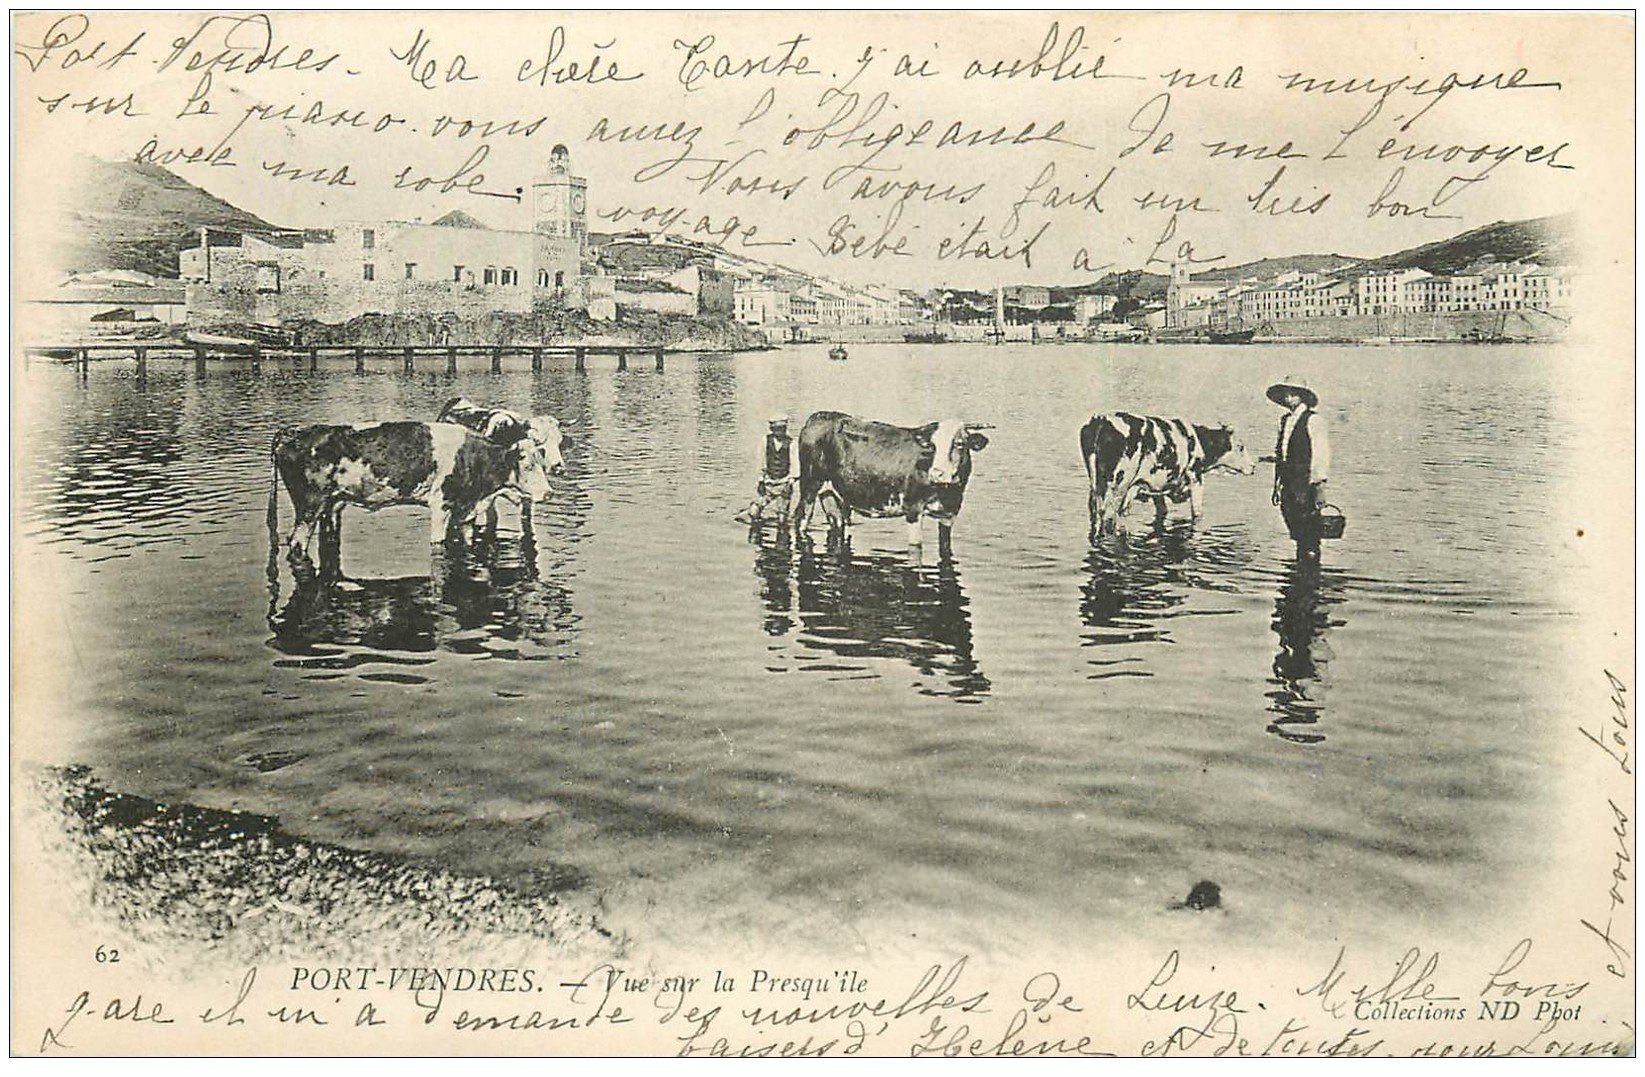 Port-Vendres. Ma chère Tante. j'ai oublié ma musique
sur le piano. vous aurez l'obligeance de me l'envoyer
avec ma robe. Nous avons fait un très bon
voyage. Bébé était à la
62
PORT-VENDRES. — Vue sur la Presqu'île
gare il m'a demandé des nouvelles de Luize. Mille bons
Collections ND Phot
baisers d'Helène et de toutes. pour
et vous tous